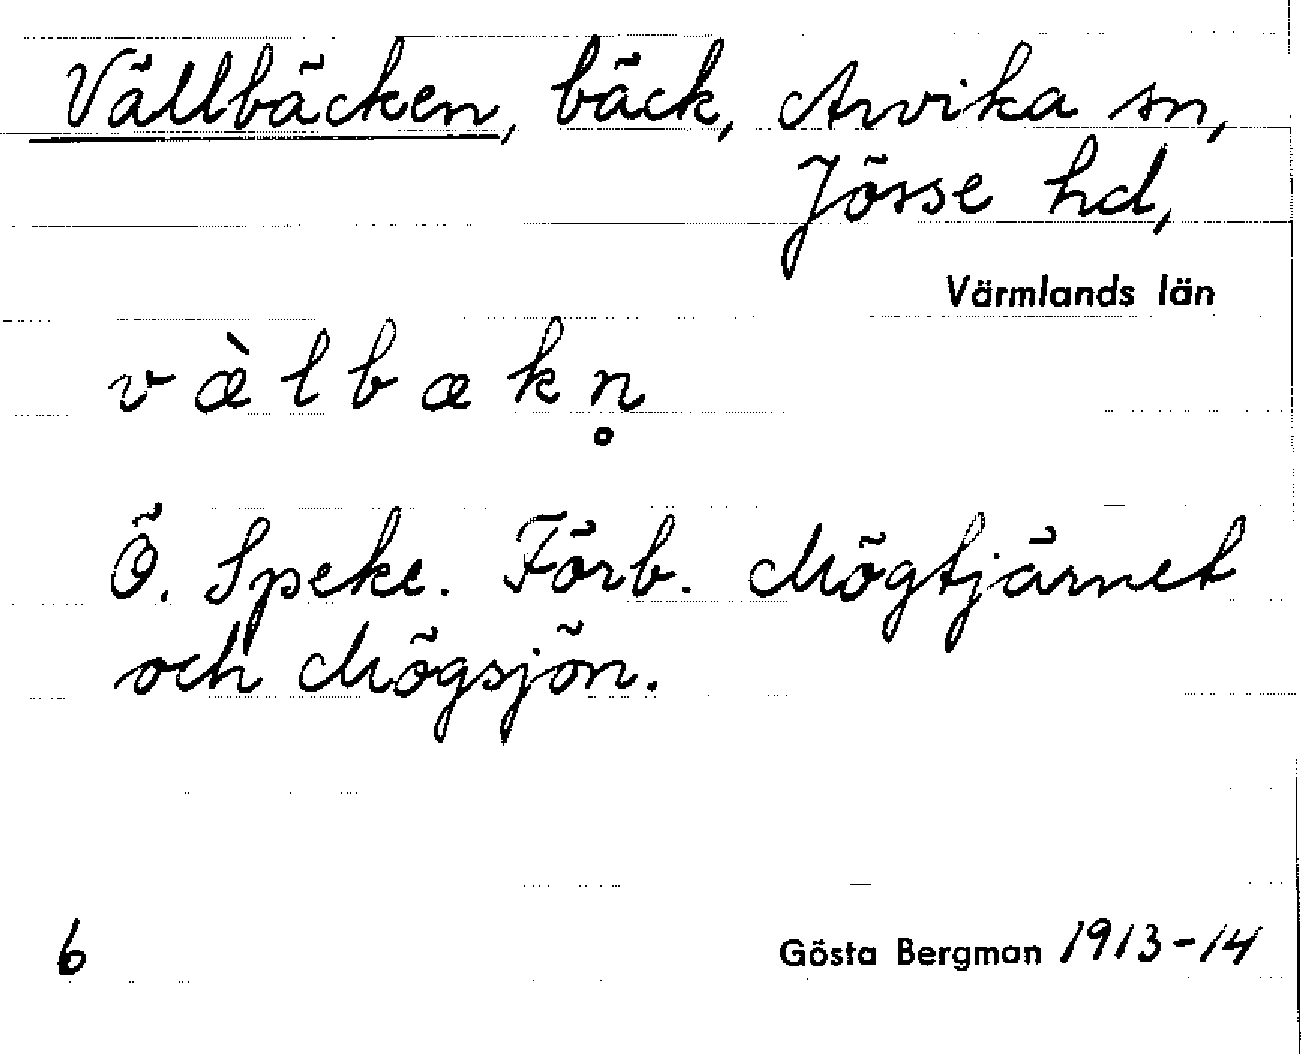 Vällbäcken, bäck, Arvika sn,
Jösse hd,
Värmlands län
v æ̀ l b æ k n̥
Ö. Speke. Förb. Mögtjärnet
och Mögsjön.
6
Gösta Bergman 1913-14